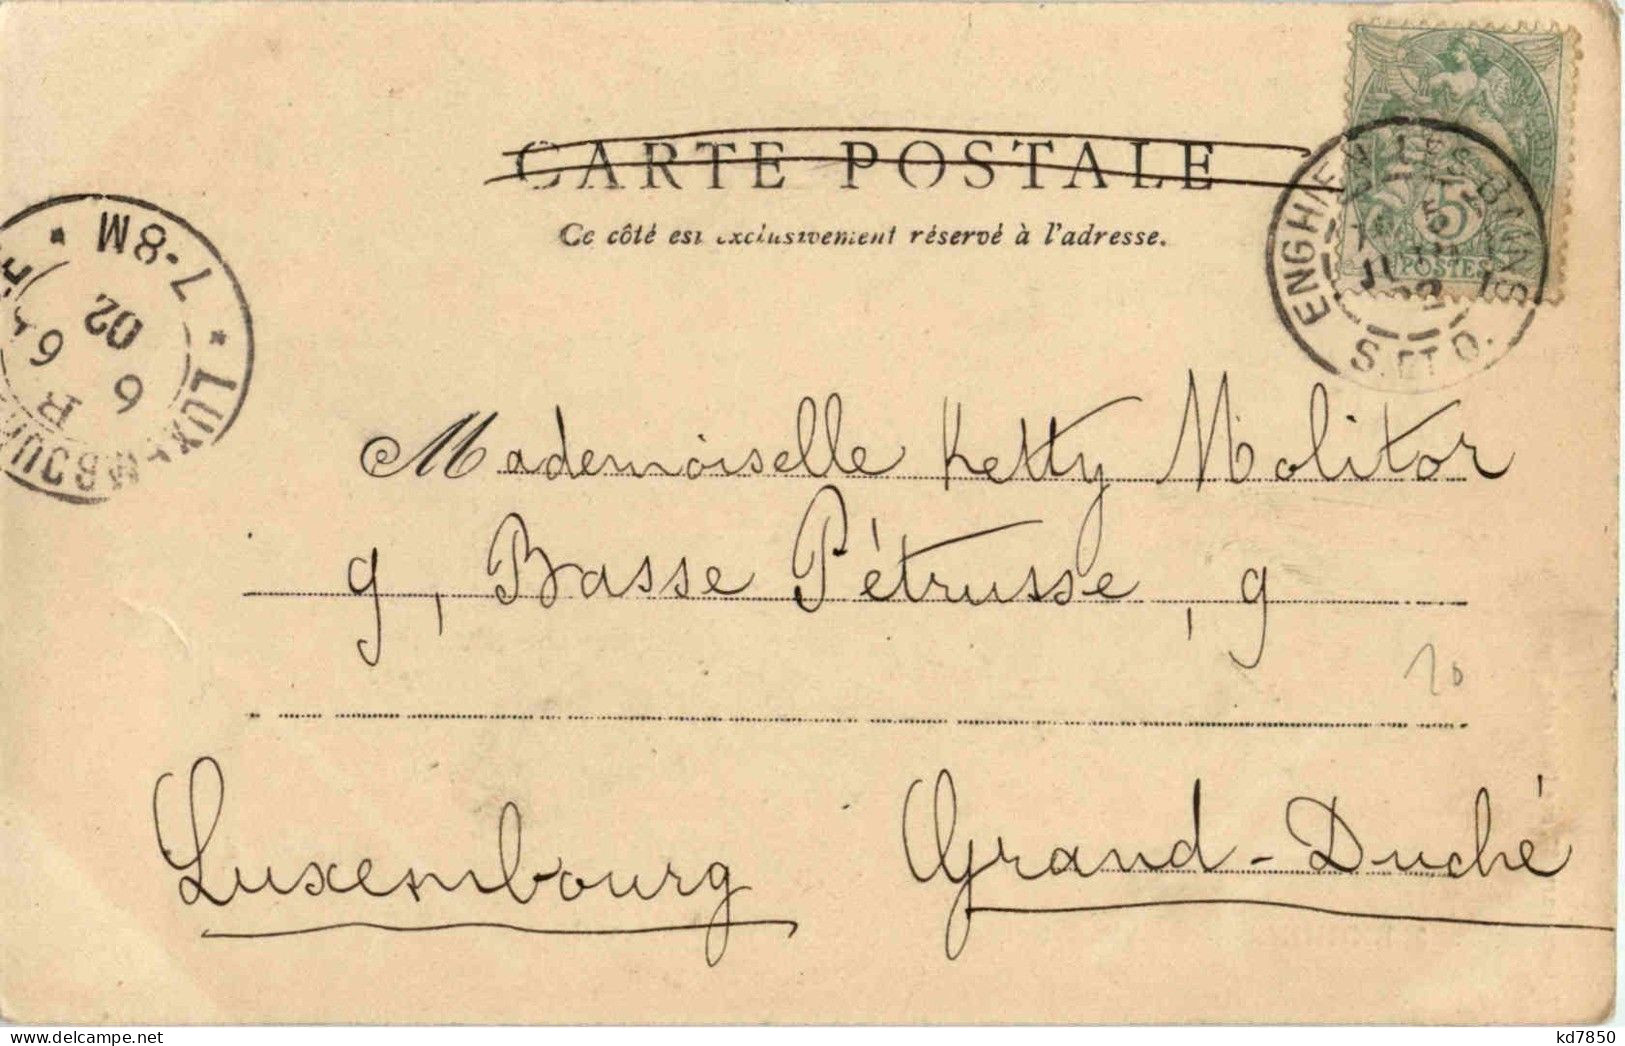 CARTE POSTALE
Ce côté est exclusivement réservé à l'adresse.
5
POSTES
ENGHIEN LES BAINS
S. ET O.
7-8M
LUXEMBOURG
02
6
6
Mademoiselle Ketty Molitor
9, Basse Pétrusse, 9
20
Luxembourg Grand-Duché
kd7850